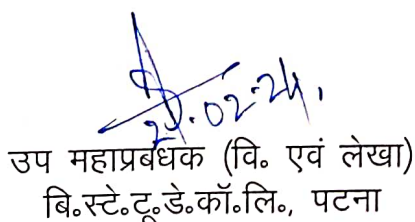 .02.24.
उप महाप्रबंधक (वि॰ एवं लेखा)
बि॰स्टे॰टू॰डे॰कॉ॰लि॰, पटना